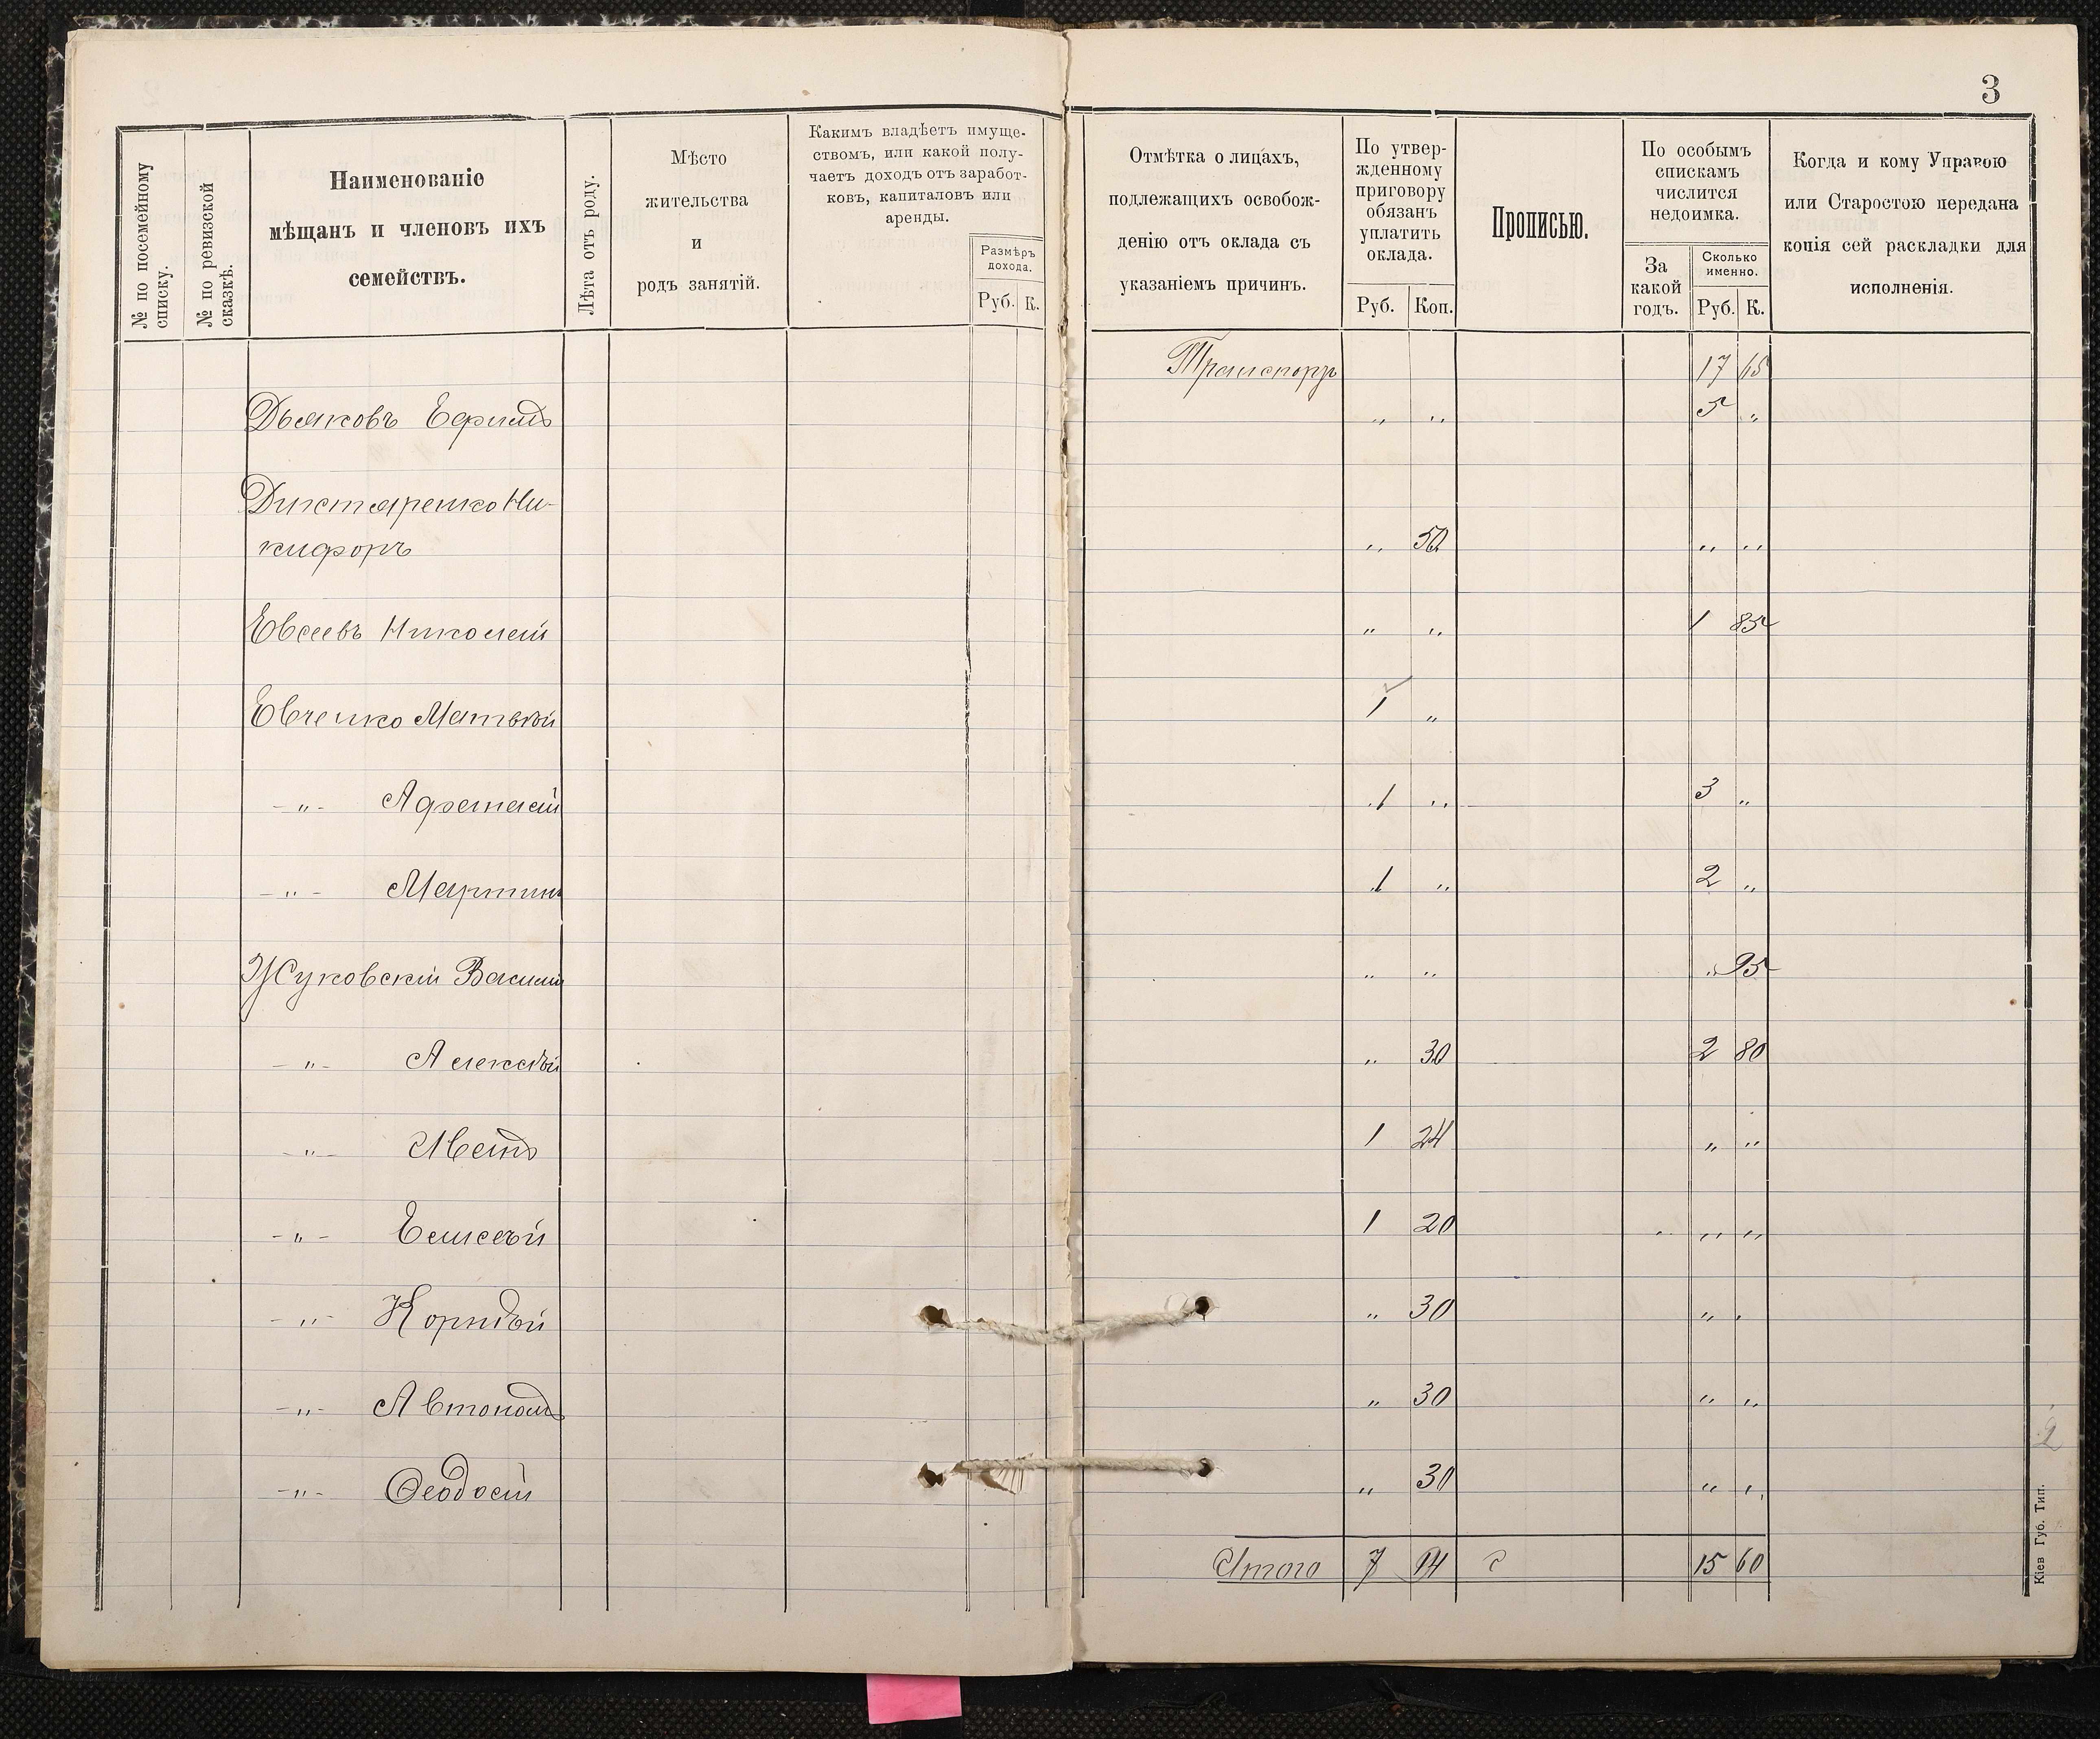 3
№ по посемейному списку.
№ по ревизской сказкѣ.
Наименованіе
мѣщанъ и членовъ ихъ
семействъ.
Лѣта отъ роду.
Мѣсто
жительства
и
родъ занятій.
Какимъ владѣетъ имуще-
ствомъ, или какой полу-
чаетъ доходъ отъ заработ-
ковъ, капиталовъ или
аренды.
Размѣръ
дохода.
Руб. К.
Отмѣтка о лицахъ,
подлежащихъ освобож-
денію отъ оклада съ
указаніемъ причинъ.
По утвер-
жденному
приговору
обязанъ
уплатить
оклада.
Руб. Коп.
Прописью.
По особымъ
спискамъ
числится
недоимка.
За
какой
годъ.
Сколько
именно.
Руб. К.
Когда и кому Управою
или Старостою передана
копія сей раскладки для
исполненія.
Транспортъ 17 65
Дьяковъ Ефимъ " " 5 "
Дихтяренко Ни-
кифоръ " 50 " "
Евсеевъ Николай " " 1 85
Евченко Матвѣй 1 "
-"- Афанасій 1 " 3 "
-"- Мартинъ 1 " 2 "
Жуковскій Василій " " " 95
-"- Алексѣй " 30 2 80
-"- Иванъ 1 24 " "
-"- Елисей 1 20 " " "
-"- Корнѣй " 30 " "
-"- Автономъ " 30 " "
-"- Ѳеодосій " 30 " "
Итого 7 14 15 60
2
Кіев Губ. Тип.